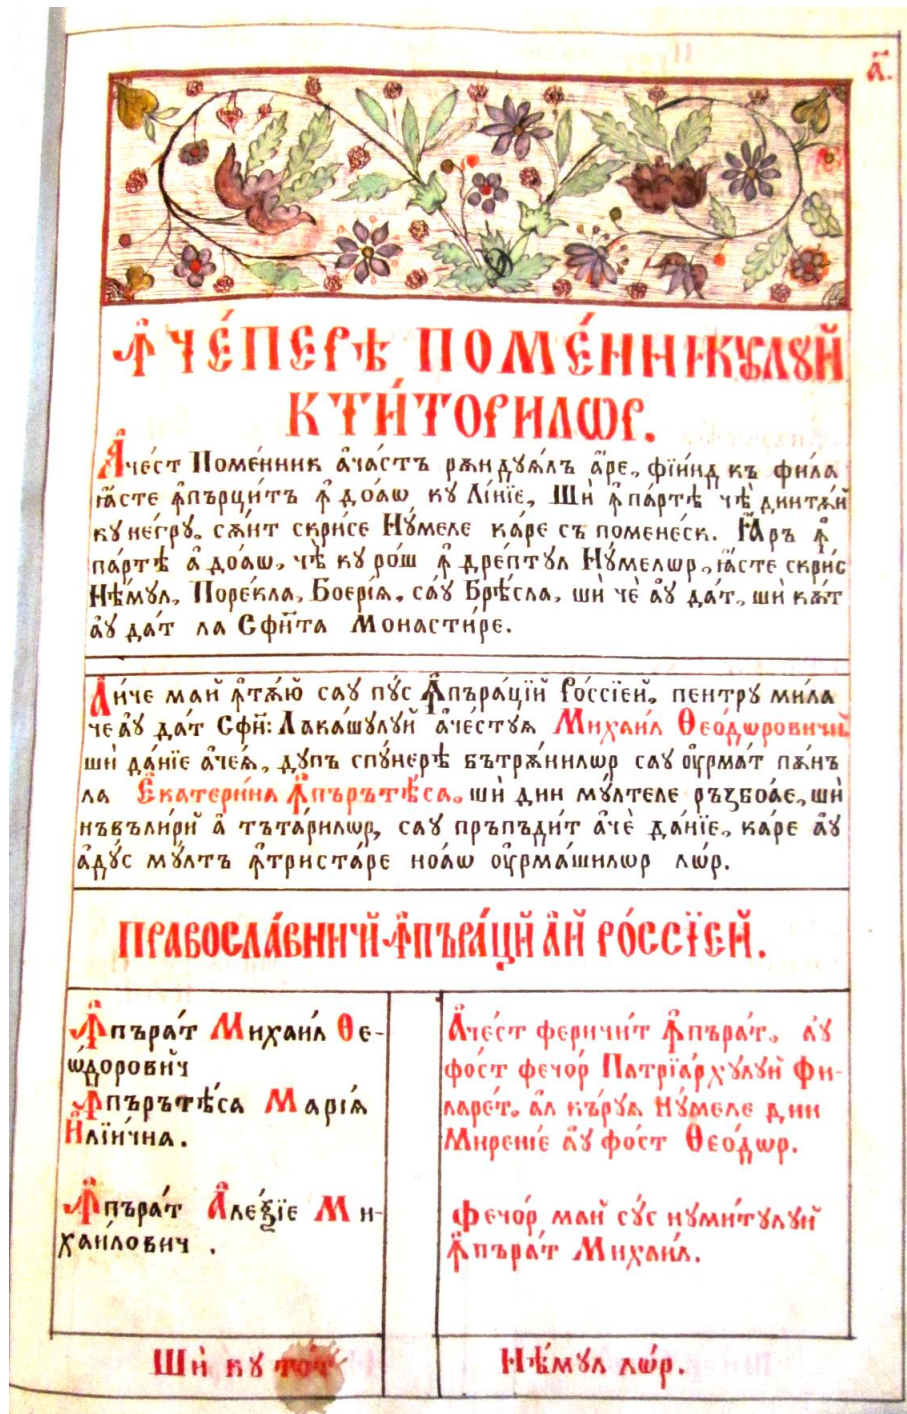 а҃.
Ꙟчéперѣ помéнникꙋлꙋй
ктѝторилѡр.
Ачéст Помéнник ачáстъ рѫндꙋꙗ́лъ áре, фїѝнд къ фила
ꙗ́сте ꙟпърцѝтъ ꙟ дóаѡ кꙋ Лѝнїе, Шѝ ꙟпáртѣ чѣ динтѫ́й
кꙋ нéгрꙋ. сѫ́нт скрѝсе Нꙋ́меле кáре съ поменéск. Ꙗръ ꙟ
пáртѣ а дóаѡ, чѣ кꙋ рóш ꙟ дрéптꙋл Нꙋ́мелѡр, ꙗ́сте скрѝс
Нѣ́мꙋл, Порéкла, Боерѝꙗ, саꙋ Брéсла, шѝ чѐ аꙋ дáт, шѝ кѫ́т
аꙋ дáт ла Сфн҃та Монастѝре.
Аѝче май ꙟтѫ́ю саꙋ пꙋ́с Ꙟпърáцїй Рóссїей, пентрꙋ мила
че аꙋ дáт Сфн҃: Лакáшꙋлꙋй ачéстꙋꙗ Михаѝл Ѳеóдѡровичй
шѝ дáнїе ачéꙗ, дꙋпъ спꙋ́нерѣ бътрѫ́нилѡр саꙋ ᲂу҆рмáт пѫ́нъ
ла Екатерѝна Ꙟпърътѣ́са, шѝ дин мꙋ́лтеле ръꙁбóае, шѝ
нъвълѝрй а тътáрилѡр, саꙋ пръпъдѝт ачѐ дáнїе, каре аꙋ
адꙋ́с мꙋ́лтъ ꙟтристáре нóаѡ ᲂу҆рмáшилѡр лѡ́р.
Православничй Ꙟпърáцй ай Рóссїей.
Ꙟпърáт Михаѝл Ѳе-
ѡдорович
Ꙟпърътѣ́са Марїꙗ
Илїѝчна.
Ꙟпърáт Алеѯїе Ми-
хаѝлович .
Ачéст феричѝт Ꙟпърáт, аꙋ
фóст фечóр Патрїáрхꙋлꙋй Фи-
ларéт. ал кърꙋꙗ Нꙋ́меле дин
Миренїе аꙋ фóст Ѳеóдѡр.
Фечóр май сꙋ́с нꙋмѝтꙋлꙋй
Ꙟпърáт Михаѝл.
Шѝ кꙋ тóт
Нѣ́мꙋл лѡ́р.